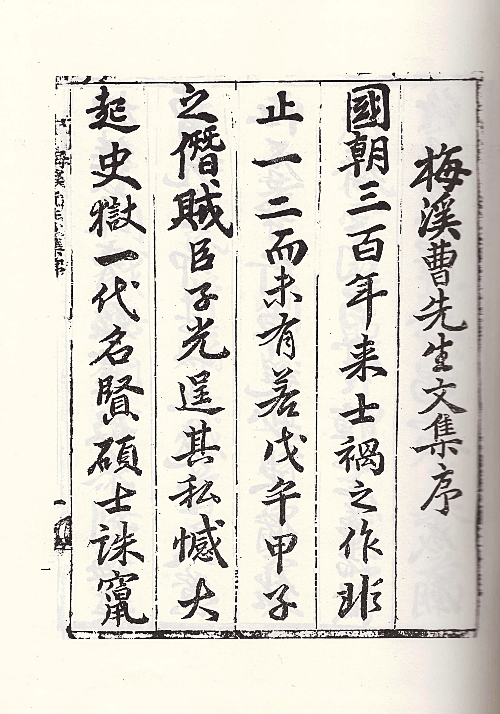 梅溪曹先生文集序
國朝三百年来士禍之作非
止一二而未有若戊午甲子
之僭賊臣子光逞其私憾大
起史獄一代名賢碩士誅竄
梅溪先生文集序